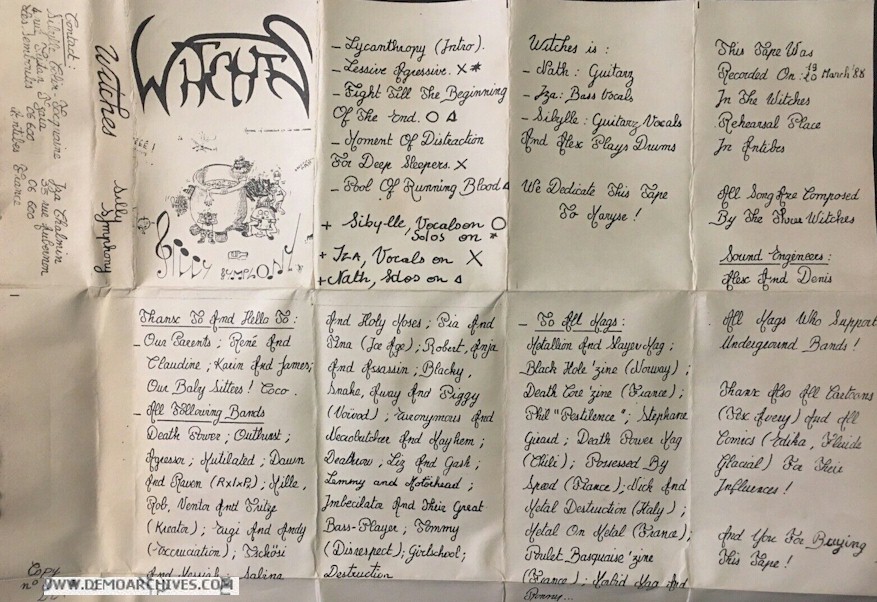 Contact:
Sibylle Colin Tocquaine
4 rue
Les Semboules 06 600
Antibes France
Iza Chalmin
35 rue Aubernon
06 600
Witches
Silly Symphony
WITCHES
SILLY SYMPHONY
- Lycanthropy (Intro).
- Lessive Agressive. X *
- Fight Till The Beginning
Of The End. O Δ
- Moment Of Distraction
For Deep Sleepers. X
- Pool Of Running Blood Δ
+ Sibylle, Vocals on O
Solos on *
+ Iza, Vocals on X
+ Nath, Solos on Δ
Witches is :
- Nath : Guitarz
- Iza : Bass Vocals
- Sibylle : Guitarz Vocals
And Alex Plays Drums
We Dedicate This Tape
To Maryse !
This Tape Was
Recorded On : 19 20 March '88
In The Witches
Rehearsal Place
In Antibes
All Song Are Composed
By The Three Witches
Sound Engineers :
Alex And Denis
Thanx To And Hello To :
- Our Parents ; René And
Claudine ; Karin And James;
Our Baby Sitters ! Coco .
- All Following Bands
Death Power ; Outburst ;
Agressor ; Mutilated ; Dawn
And Raven (RxIxP) ; Mille,
Rob, Ventor And Fritze
(Kreator) ; And Andy
And Messiah ; Sabina
And Holy Moses ; Pia And
Tina (Ice Age) ; Robert, Anja
And Assassin ; Blacky,
Snake, Away And Piggy
(Voivod) ; Euronymous And
Necrobutcher And Mayhem ;
Deathrow ; Liz And Gash ;
Lemmy and Motörhead ;
Imbecilator And Their Great
Bass-Player ; Tommy
(Disrespect) ; Girlschool ;
Destruction
- To All Mags :
Metallion And Slayer Mag ;
Black Hole 'zine (Norway) ;
Death Core 'zine (France) ;
Phil "Pestilence" ; Stephane
Girard ; Death Power Mag
(Chili) ; Possessed By
Speed (France) ; Nick And
Metal Destruction (Italy) ;
Metal On Metal (France) ;
Poulet Basquaise 'zine
(France) ; Morbid Mag And
Ronny...
All Mags Who Support
Underground Bands !
Thanx Also All Cartoons
(Tex Avery) And All
Comics (Edika, Fluide
Glacial) For Their
Influences !
And You For Buying
This Tape !
Copy
n°
WWW.DEMOARCHIVES.COM